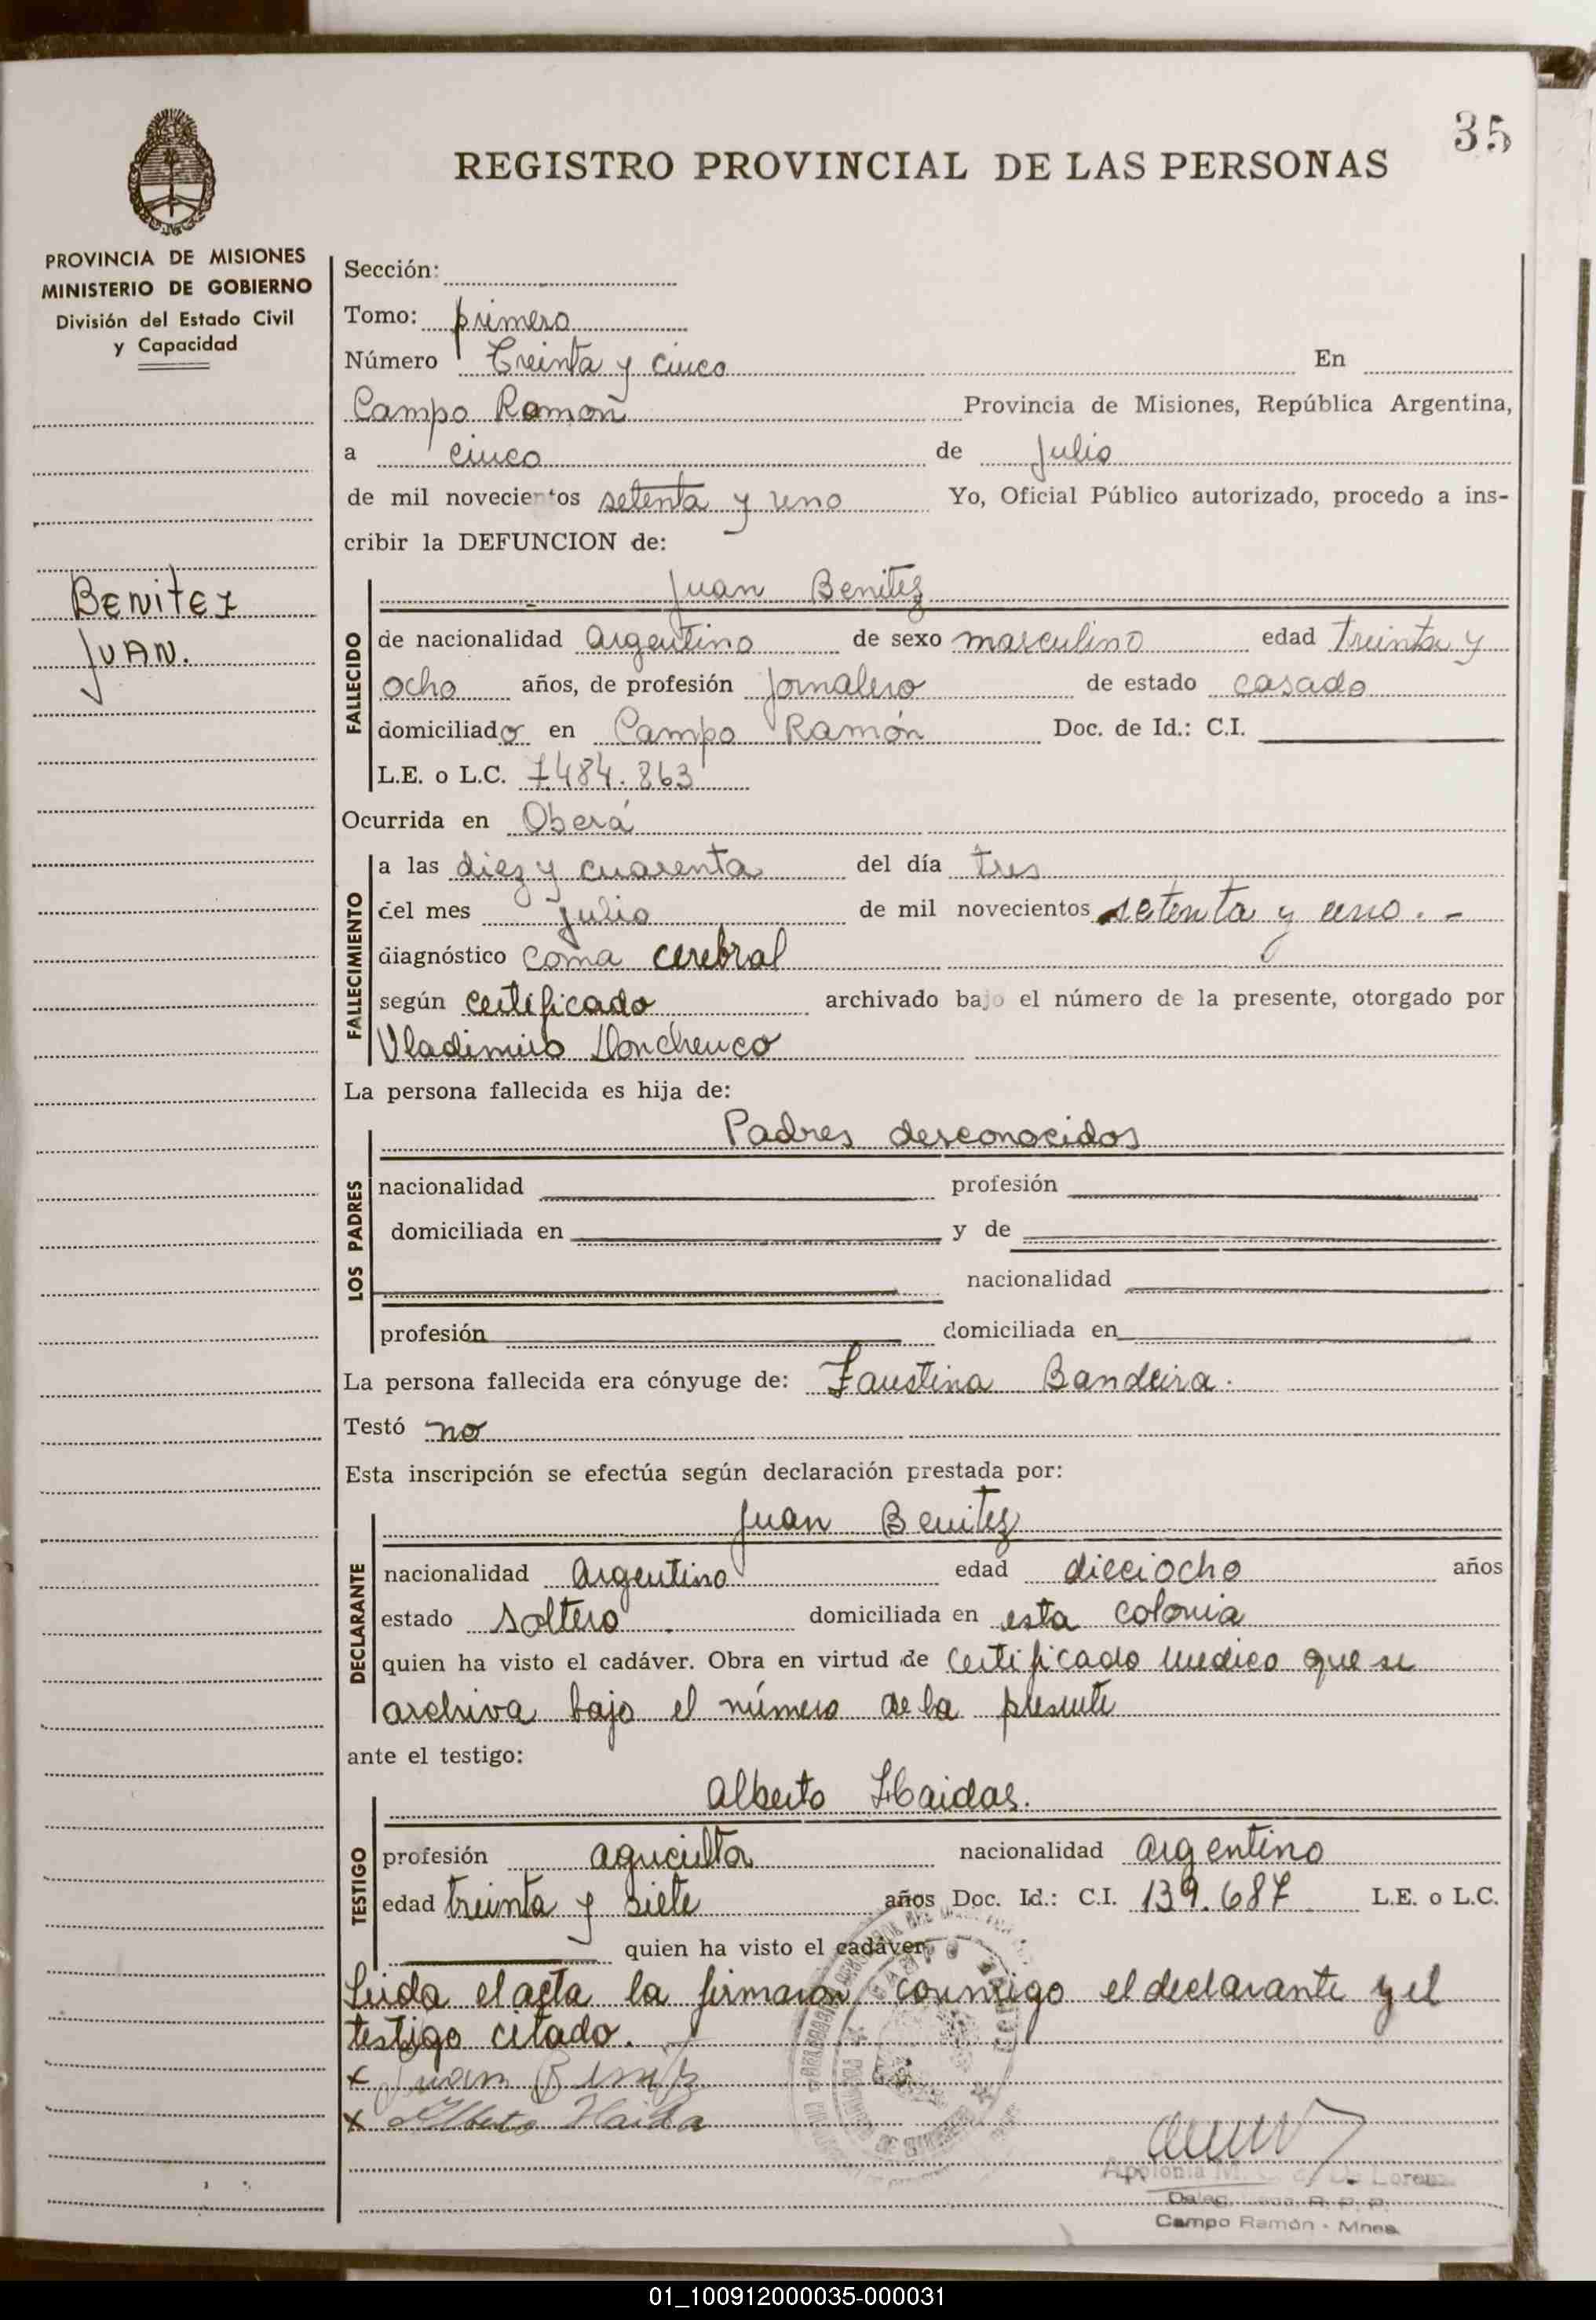 35
REGISTRO PROVINCIAL DE LAS PERSONAS
PROVINCIA DE MISIONES
MINISTERIO DE GOBIERNO
División del Estado Civil
y Capacidad
Benitez
Juan.
Sección:
Tomo: primero
Número Treinta y cinco En
Campo Ramón Provincia de Misiones, República Argentina,
a cinco de Julio
de mil novecientos setenta y uno Yo, Oficial Público autorizado, procedo a ins-
cribir la DEFUNCION de:
Juan Benitez
FALLECIDO
de nacionalidad Argentino de sexo masculino edad treinta y
ocho años, de profesión Jornalero de estado casado
domiciliado en Campo Ramón Doc. de Id.: C.I.
L.E. o L.C. 7.484.863
Ocurrida en Oberá
FALLECIMIENTO
a las diez y cuarenta del día tres
del mes julio de mil novecientos setenta y uno. -
diagnóstico Coma cerebral
según certificado archivado bajo el número de la presente, otorgado por
Vladimiro
La persona fallecida es hija de:
Padres desconocidos
LOS PADRES
nacionalidad profesión
domiciliada en y de
nacionalidad
profesión domiciliada en
La persona fallecida era cónyuge de: Faustina Bandeira.
Testó no
Esta inscripción se efectúa según declaración prestada por:
Juan Benitez
DECLARANTE
nacionalidad Argentino edad dieciocho años
estado soltero domiciliada en esta colonia
quien ha visto el cadáver. Obra en virtud de certificado medico que se
archiva bajo el número de la presente
ante el testigo:
Alberto Haidas.
TESTIGO
profesión agricultor nacionalidad argentino
edad treinta y siete años Doc. Id.: C.I. 139.687 L.E. o L.C.
quien ha visto el cadáver.
Leida el acta la firmaron conmigo el declarante y el
testigo citado.
x Juan Benitz
x Alberto Haida
Apolonia M. Loren
Campo Ramón - Mnes.
01_100912000035-000031